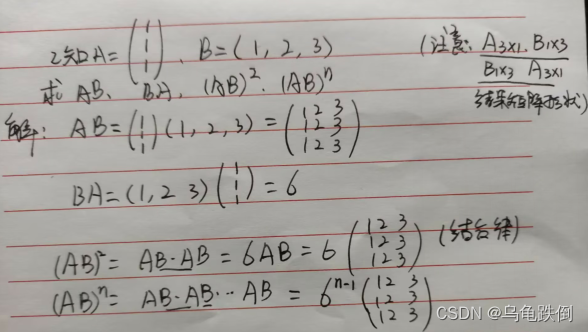 已知A=(1 1 1), B=(1, 2, 3) (注意: A3x1. B1x3
求 AB、BA, (AB)²、(AB)ⁿ B1x3 A3x1
结果矩阵形状)
解: AB=(1 1 1)(1, 2, 3)=(1 2 3 1 2 3 1 2 3)
BA=(1, 2 3)(1 1 1)=6
(AB)²= AB·AB = 6AB = 6(1 2 3 1 2 3 1 2 3) (结合律)
(AB)ⁿ= AB·AB·· AB = 6ⁿ⁻¹(1 2 3 1 2 3 1 2 3)
CSDN @乌龟跌倒